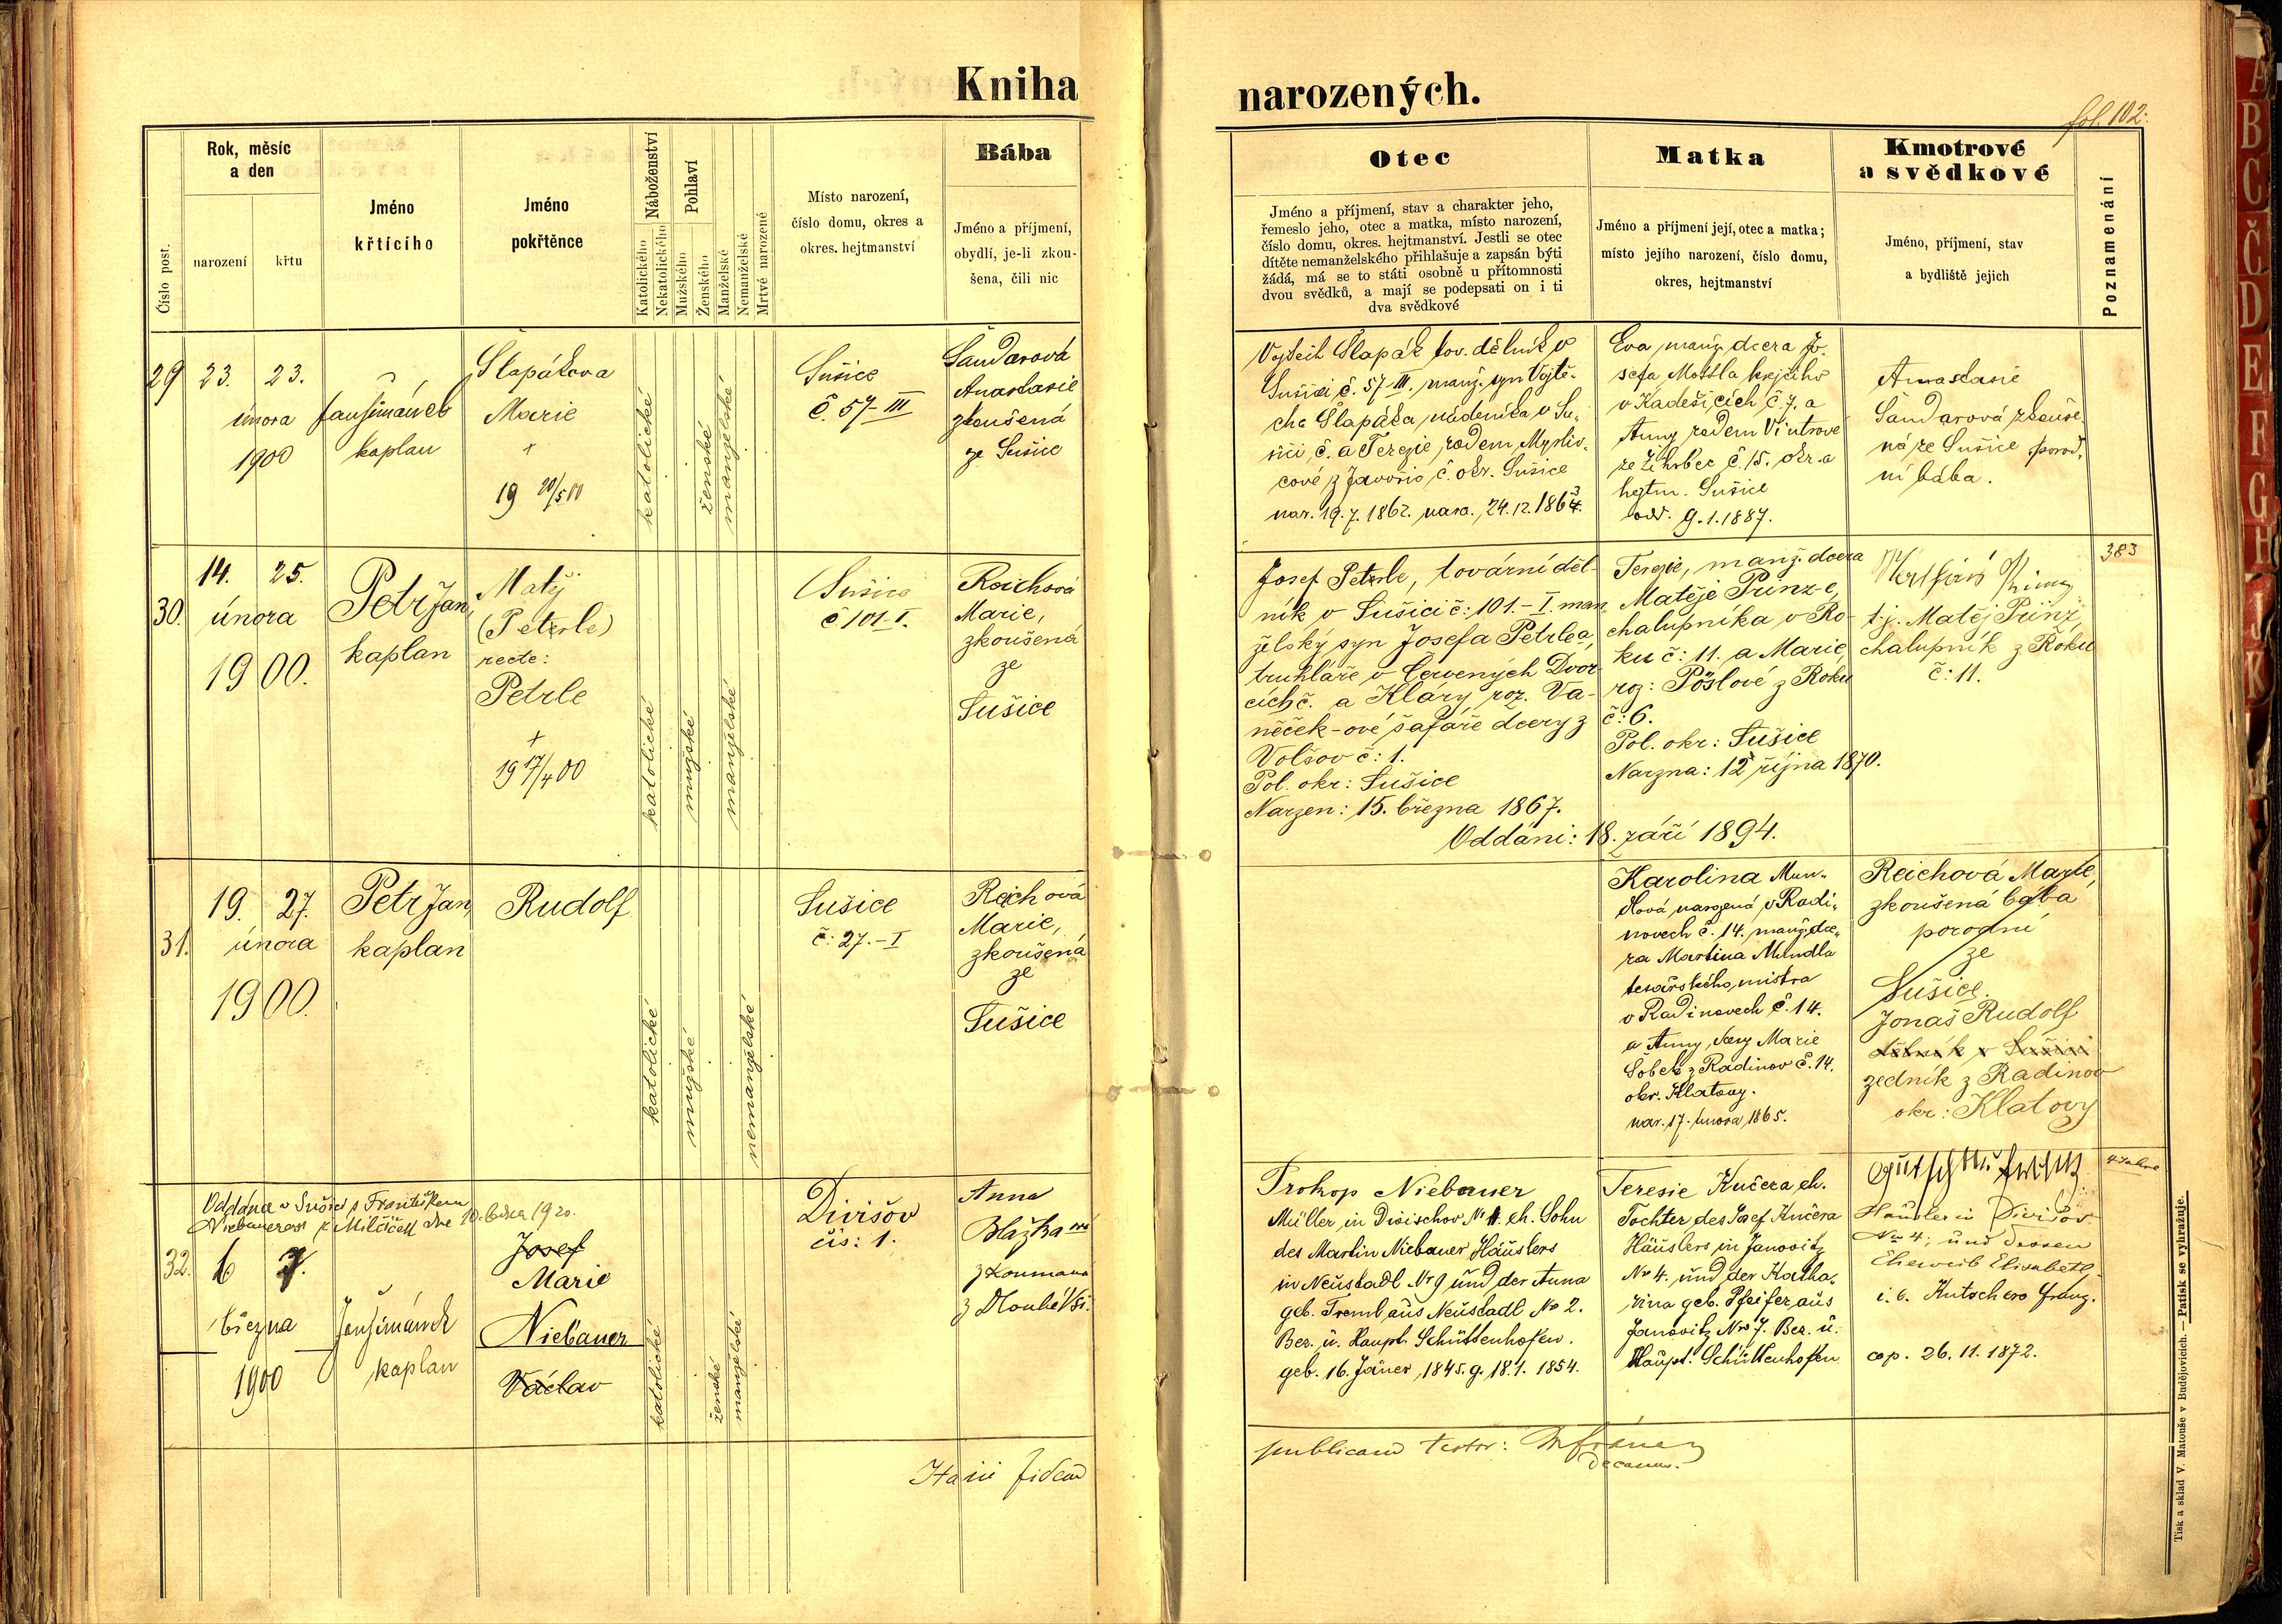 Kniha narozených.
fol. 102.
Číslo post.
Rok, měsíc
a den
narození
křtu
Jméno
křtícího
Jméno
pokřtěnce
Náboženství
Katolického
Nekatolického
Pohlaví
Mužského
Ženského
Manželské
Nemanželské
Mrtvé narozené
Místo narození,
číslo domu, okres a
okres. hejtmanství
Bába
Jméno a příjmení,
obydlí, je-li zkou-
šena, čili nic
Otec
Jméno a příjmení, stav a charakter jeho,
řemeslo jeho, otec a matka, místo narození,
číslo domu, okres. hejtmanství. Jestli se otec
dítěte nemanželského přihlašuje a zapsán býti
žádá, má se to státi osobně u přítomnosti
dvou svědků, a mají se podepsati on i ti
dva svědkové
Matka
Jméno a příjmení její, otec a matka;
místo jejího narození, číslo domu,
okres, hejtmanství
Kmotrové
a svědkové
Jméno, příjmení, stav
a bydliště jejich
Poznamenání
29
23. 23.
února
1900
kaplan
Slapákova
Marie
+
19 20/5 00
katolické
ženské
manželské
Sušice
č. 57-III
Sandarová
Anastasie
zkoušená
ze Sušice
Vojtěch Slapák tov. dělník v
Sušici č. 57-III. manž. syn Vojtě-
cha Slapáka nádeníka v Su-
šici, č. a Terezie, rodem Mysliv-
cové z č. okr. Sušice
nar. 19.7.1862. nara. 24.12.1863.
Eva, manž. dcera Jo-
sefa krejčího
v Kadešicích č. 7. a
Anny rodem Vintrové
ze Žihobec č. 15. okr. a
hejtm. Sušice
odd. 9.1.1887.
Anastasie
Sandarová zkouše-
ná ze Sušice porod-
ní bába.
30.
14. 25.
února
1900.
Petr Jan,
kaplan
Matěj
(Peterle)
recte:
Petrle
+
19 17/4 00
katolické
mužské
manželské
Sušice
č. 101-I.
Reichová
Marie,
zkoušená
ze
Sušice
Josef Petrle, tovární děl-
ník v Sušici č: 101.-I. man-
želský syn Josefa Petrle a
truhláře v Červených Dvor-
cích č. a Kláry, roz. Va-
něček-ové šafáře dcery z
Volšov č: 1.
Pol. okr: Sušice
Narzen: 15. března 1867.
Oddáni: 18. září 1894.
Terezie, manž. dcera
Matěje Prinz-e,
chalupníka v Ro-
ku č: 11. a Marie,
roz: Pöslové z Roku
č: 6.
Pol. okr: Sušice
Narzna: 12 října 1870.
t.j. Matěj Prinz,
chalupník z Roku
č: 11.
383
31.
19. 27.
února
1900.
Petr Jan,
kaplan
Rudolf
katolické
mužské
nemanželské
Sušice
č: 27.-I
Reichová
Marie,
zkoušená
ze
Sušice
Karolina Mun-
dlová narozená v Radi-
novech č. 14. manž. dce-
ra Martina Mundla
tesařského mistra
v Radinovech č. 14.
a Anny, dcery Marie
z Radinov č. 14.
okr. Klatovy.
nar. 17. února 1865.
Reichová Marie,
zkoušená bába
porodní
ze
Sušice.
Jonaš Rudolf
dělník v Sušici
zedník z Radinov
okr: Klatovy
Oddána v Sušici s Františkem
32.
6 7.
března
1900
kaplan
Josef
Marie
Niebauer
Václav
katolické
ženské
manželské
Divišov
čís: 1.
Anna
Blažkaová
zkoumana
z Dlouhé Vsi.
Prokop Niebauer
Müller in Divischov No 1. eh. Sohn
des Martin Niebauer Häuslers
in Neustadl No 9 und der Anna
geb. Treml aus Neustadl No 2.
Bez. u. Haupt. Schüttenhofen.
geb. 16. Jäner, 1845. g. 18.1. 1854.
Teresie Kučera eh.
Tochter des Josef Kučera
Häuslers in Janovitz
No 4. und der Katha-
rina geb. Pfeifer aus
Janovitz No 7. Bez. u.
Haupt. Schüttenhofen
Häusler in Divišov
No 4; und dessen
Eheweib Elisabeth
i. e. Kutschera Franz.
cop. 26.11.1872.
In fidem
publicam testor:
Decanus.
Tisk a sklad V. Matouše v Budějovicích. — Patisk se vyhražuje.
A
B
C
Č
D
E
F
G
H
J
K